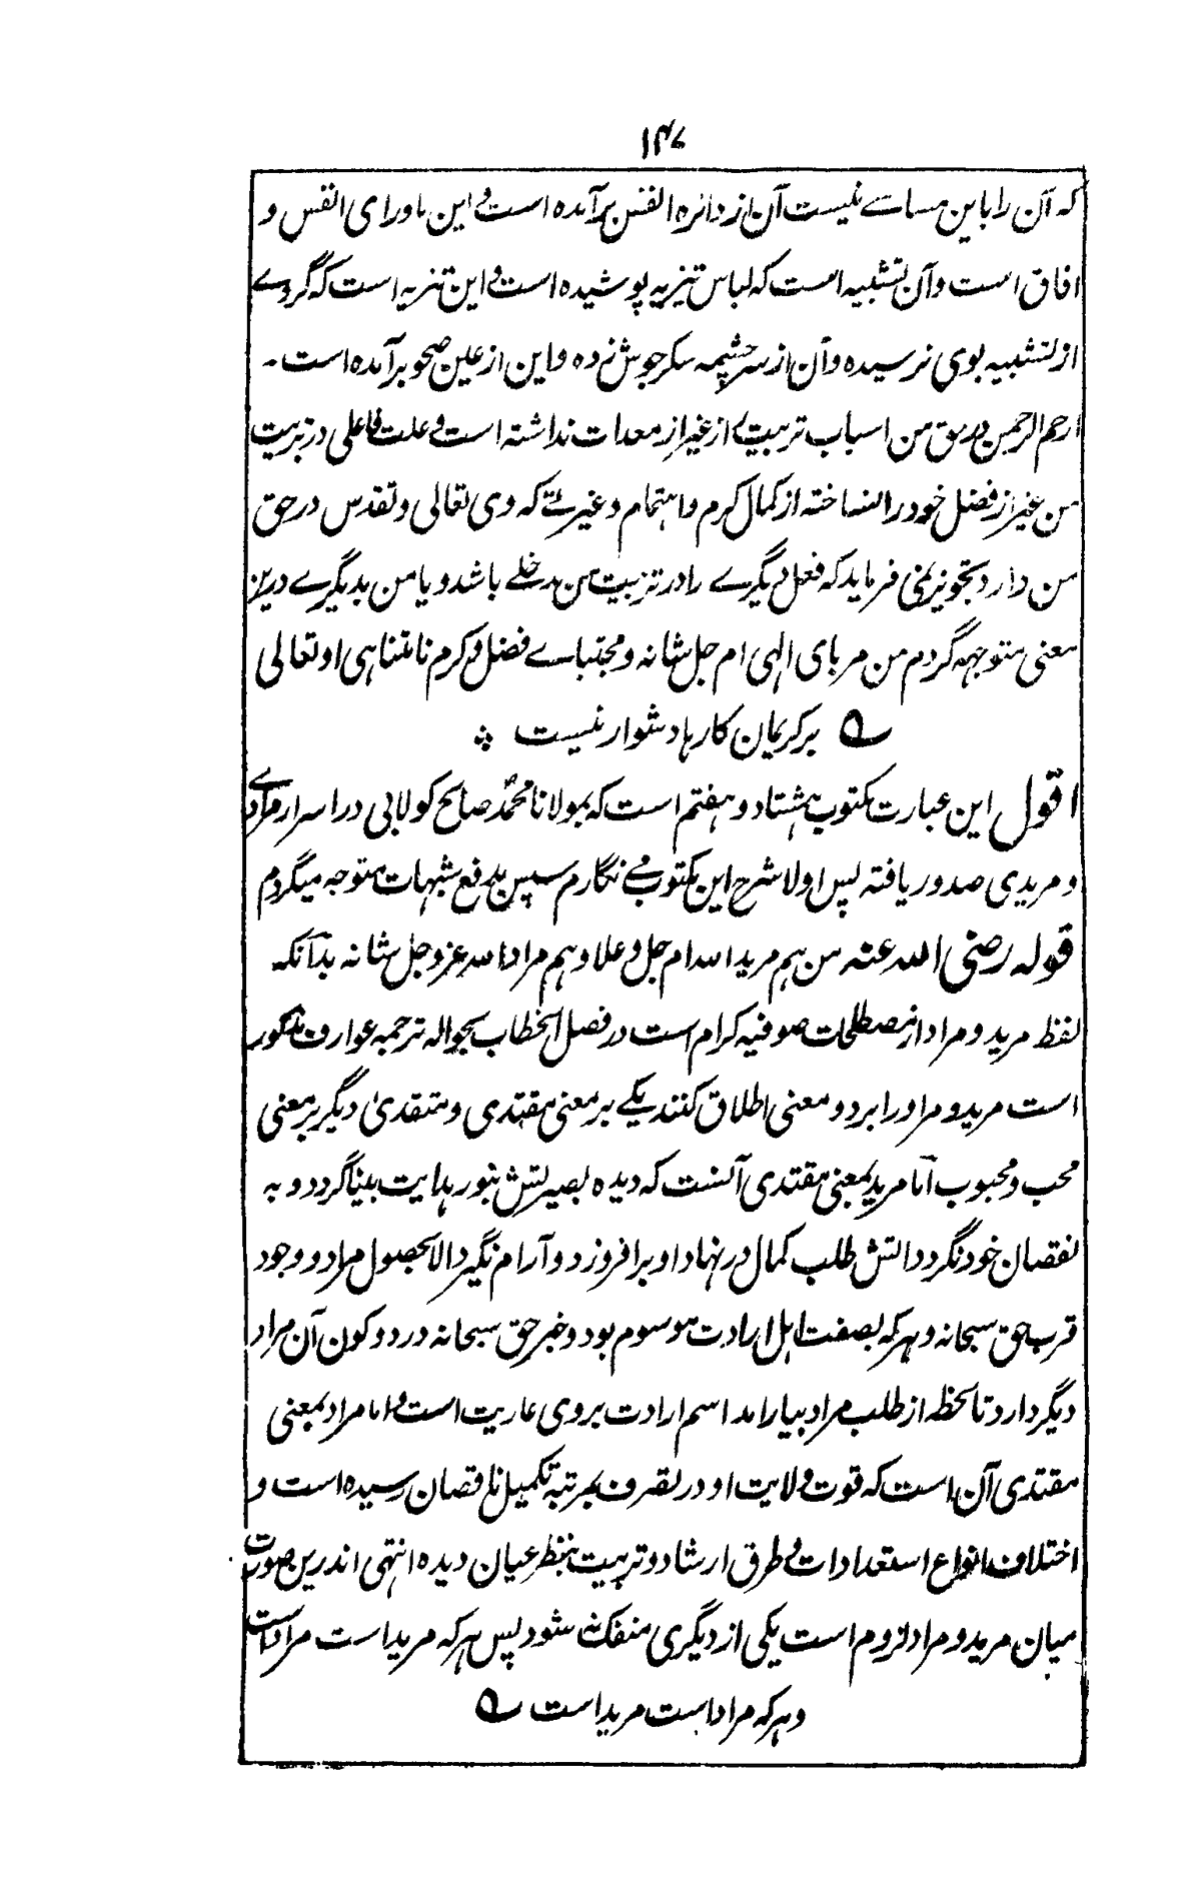 ۱۴۷
که آن را باین مساسے نیست آن از دائره انفس برآمده است و این ماورای انفس و
افاق است و آن تشبیه است که لباس تنزیه پوشیده است و این تنزیه است که گردے
از تشبیه بوی نرسیده و آن از سرچشمه سکر جوش زده و این از عین صحو برآمده است -
ارحم الرحمن در حق من اسباب تربیت را از غیر از معدات نداشته است و علت فاعلی در تربیت
من غیر از فضل خود را نساخته از کمال کرم و اهتمام و غیرتے که وی تعالی و تقدس در حق
من دارد تجویز نمی فرماید که فعل دیگرے را در تربیت من مدخلے باشد و یا من بدیگرے درین
معنی متوجهه گردم من مربای الهی ام جل شانه و مجتباے فضل و کرم نامتناهی او تعالی
؎ بر کریمان کارها دشوار نیست ❖
اقول این عبارت مکتوب هشتاد و هفتم است که بمولانا محمد صالح کولابی در اسرار مرادے
و مریدی صدور یافته پس اولا شرح این مکتوب مے نگارم سپس بدفع شبهات متوجه میگردم
قوله رضی الله عنه من هم مرید الله ام جل و علا و هم مراد الله عز و جل شانه بدآنکه
لفظ مرید و مراد از مصطلحات صوفیه کرام است در فصل الخطاب بحواله ترجمه عوارف مذکور
است مرید و مراد را بر دو معنی اطلاق کنند یکے بر معنی مقتدی و مقتدیٰ دیگر بر معنی
محب و محبوب اما مرید بمعنی مقتدی آنست که دیده بصیرتش بنور هدایت بینا گردد و به
نقصان خود نگرد و اتش طلب کمال در نهاد او بر افروزد و آرام نگیرد الا بحصول مراد و وجود
قرب حق سبحانه و هر که بصفت اهل ارادت موسوم بود و خبر حق سبحانه در دو کون آن مراد
دیگر دارد تا لحظه از طلب مراد بیارامد اسم ارادت بروی عاریت است و اما مراد بمعنی
مقتدی آن است که قوت ولایت او در تصرف بمرتبه تکمیل ناقصان رسیده است و
اختلاف انواع استعدادات و طرق ارشاد و تربیت بنظر عیان دیده انتهی اندرین صورت
میان مرید و مراد لزوم است یکی از دیگری منفک نے شود پس هر که مرید است مراد است
و هر که مراد است مرید است ؎